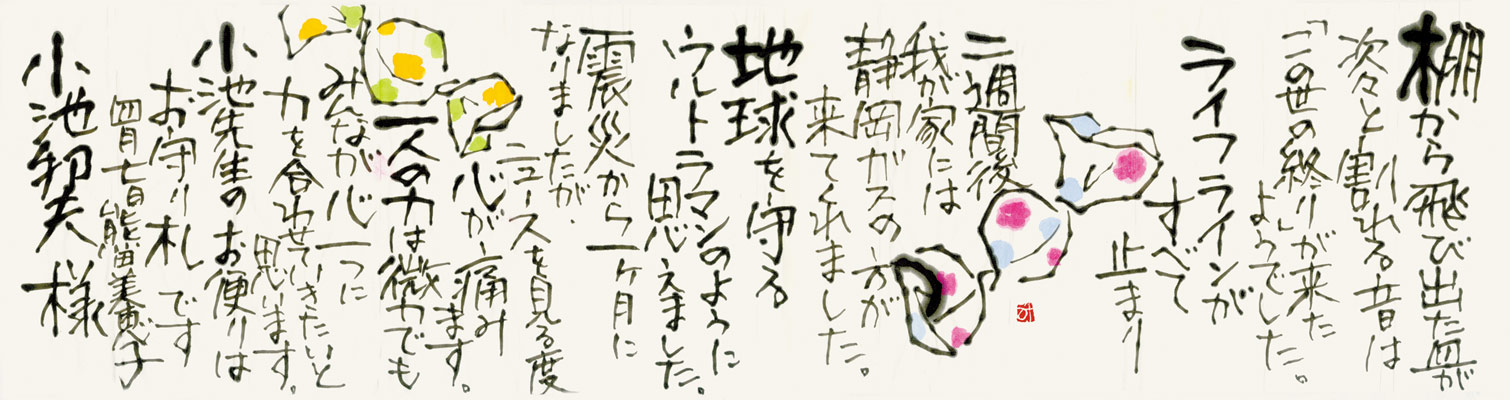 棚から飛び出た皿が
次々と割れる音は
「この世の終りが来た
ようでした。
ライフラインが
すべて
止まり
二週間後
我が家には
静岡ガスの方が
来てくれました。
地球を守る
ウルトラマンのように
思えました。
震災から一ヶ月に
なりましたが、
ニュースを見る度
心が痛み
ます。
一人の力は微力でも
みんなが心一つに
力を合わせていきたいと
思います。
小池先生のお便りは
お守り札です
四月七日
小池邦夫様